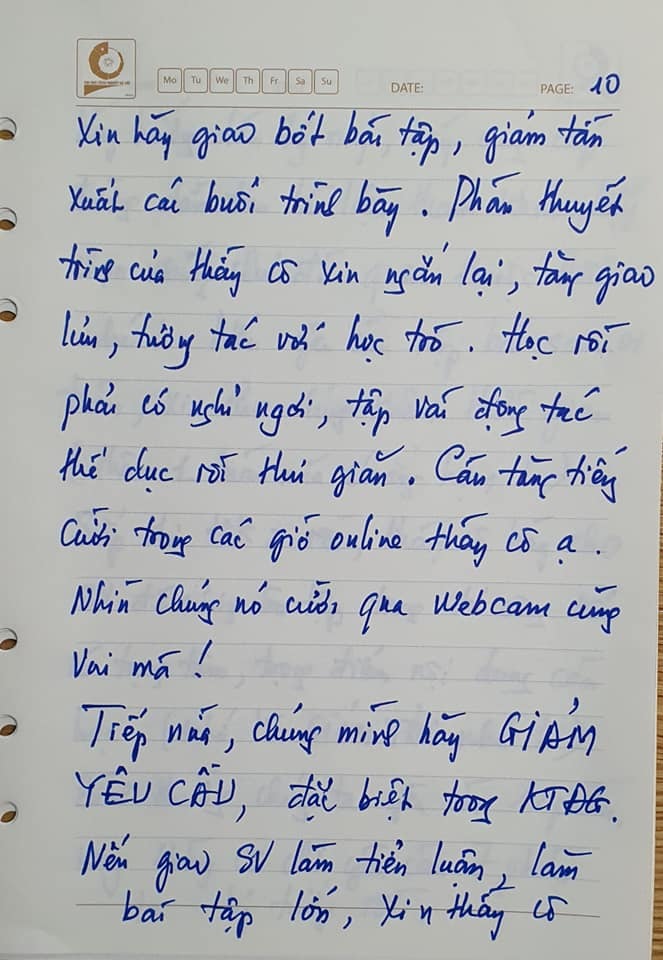 Mo Tu We Th Fr Sa Su DATE: PAGE: 10
Xin hãy giao bớt bài tập, giảm tần
xuất các buổi trình bày. Phần thuyết
trình của thầy cô xin ngắn lại, tăng giao
lưu, tương tác với học trò. Học rồi
phải có nghỉ ngơi, tập vài động tác
thể dục rồi thư giãn. Cần tăng tiếng
cười trong các giờ online thầy cô ạ.
Nhìn chúng nó cười qua Webcam cũng
vui mà!
Tiếp nữa, chúng mình hãy GIẢM
YÊU CẦU, đặc biệt trong KTĐG.
Nếu giao SV làm tiểu luận, làm
bài tập lớn, xin thầy cô